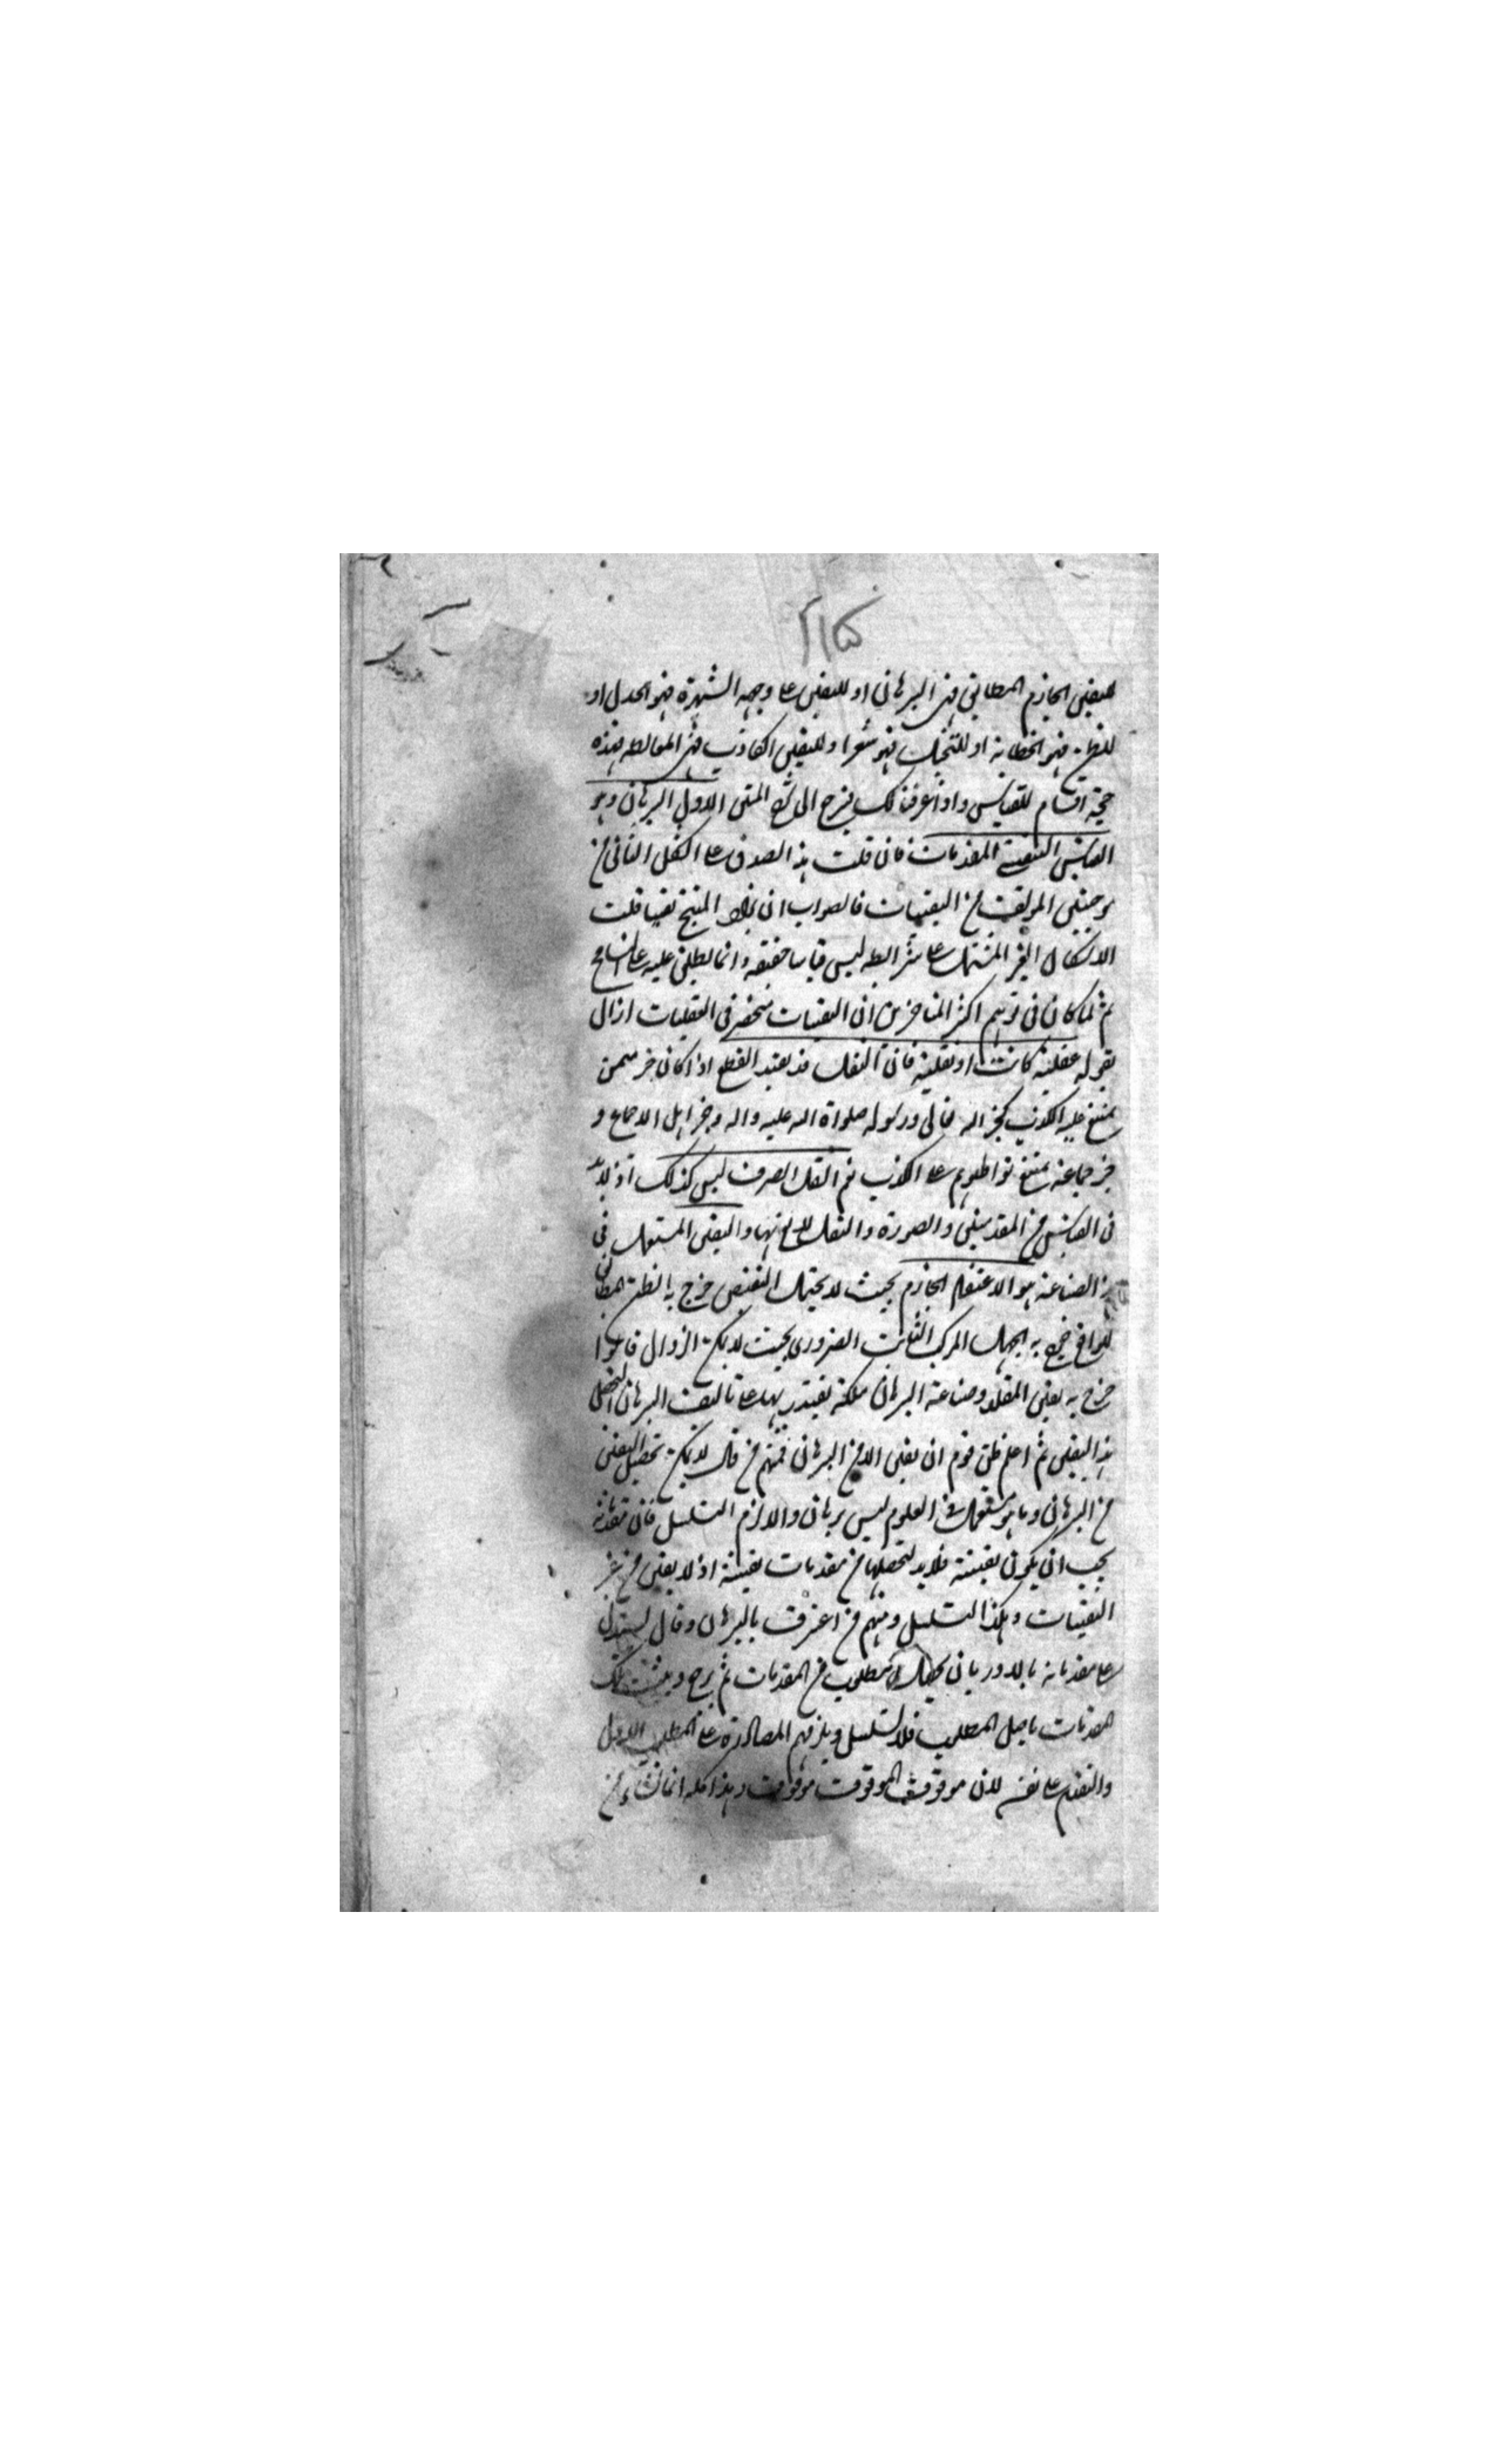 لليقين الجازم المطابق فهى البرهان او لليقين على وجه الشهرة فهو الجدل او
للظن فهو الخطابة او للتخيل فهو شعر او لليقين الكاذب فهى المغالطه فهذه
خمسة اقسام للقياس واذا عرفنا لك فنرجع الى شرح المتن الاول البرهان وهو
القياس اليقينى المقدمات فان قلت هذا يصدق على الشكل الثانى من
موجبتين المؤلف من اليقينيات فالصواب ان يزاد المنتج يقينا قلت
الاشكال الغير المشتمل على شرائطه ليس قياسا حقيقه وانما يطلق عليه على التسامح
ثم لما كان فى توهم اكثر المتاخرين ان اليقينيات منحصر فى العقليات ازال
بقوله عقلية كانت او نقلية فان النقل قد يفيد القطع اذا كان خبر ممن
يمتنع عليه الكذب كخبر الله تعالى ورسوله صلواة الله عليه واله وخبر اهل الاجماع و
خبر جماعة يمتنع تواطئهم على الكذب نعم النقل الصرف ليس كذلك اذ لابد
فى القياس من المقدمتين والصورة والنقل لا واليقين المستعمل فى
هذه الصناعة هو الاعتقاد الجازم بحيث لا يحتمل النقيض خرج به الظن المطابق
للواقع خرج به الجهل المركب الثابت الضرورى بحيث لا يمكن الزوال
خرج به يقين المقلد وصناعة البرهان ملكة يقتدر بها على تاليف البرهان المحصل
هذا اليقين ثم اعلم ظن قوم ان يقين الا من البرهان فمنهم من قال لا يمكن تحصيل اليقين
من البرهان وما هو مستعمل فى العلوم ليس ببرهان والا لزم التسلسل فان مقدماته
يجب ان يكون يقينية فلابد لتحصيلها من مقدمات يقينية اذ لا يقين من غير
اليقينيات وهكذا التسلسل ومنهم من اعترف بالبرهان وقال يستدل
على مقدماته بالدور بان يحصل المطلوب من المقدمات ثم يرجع ويثبت تلك
المقدمات باصل المطلوب فلا تسلسل ويلزمهم المصادرة على المطلوب الاول
والتقدم على نفسه لان موقوف الموقوف موقوف وهذا كله انما نشاء من